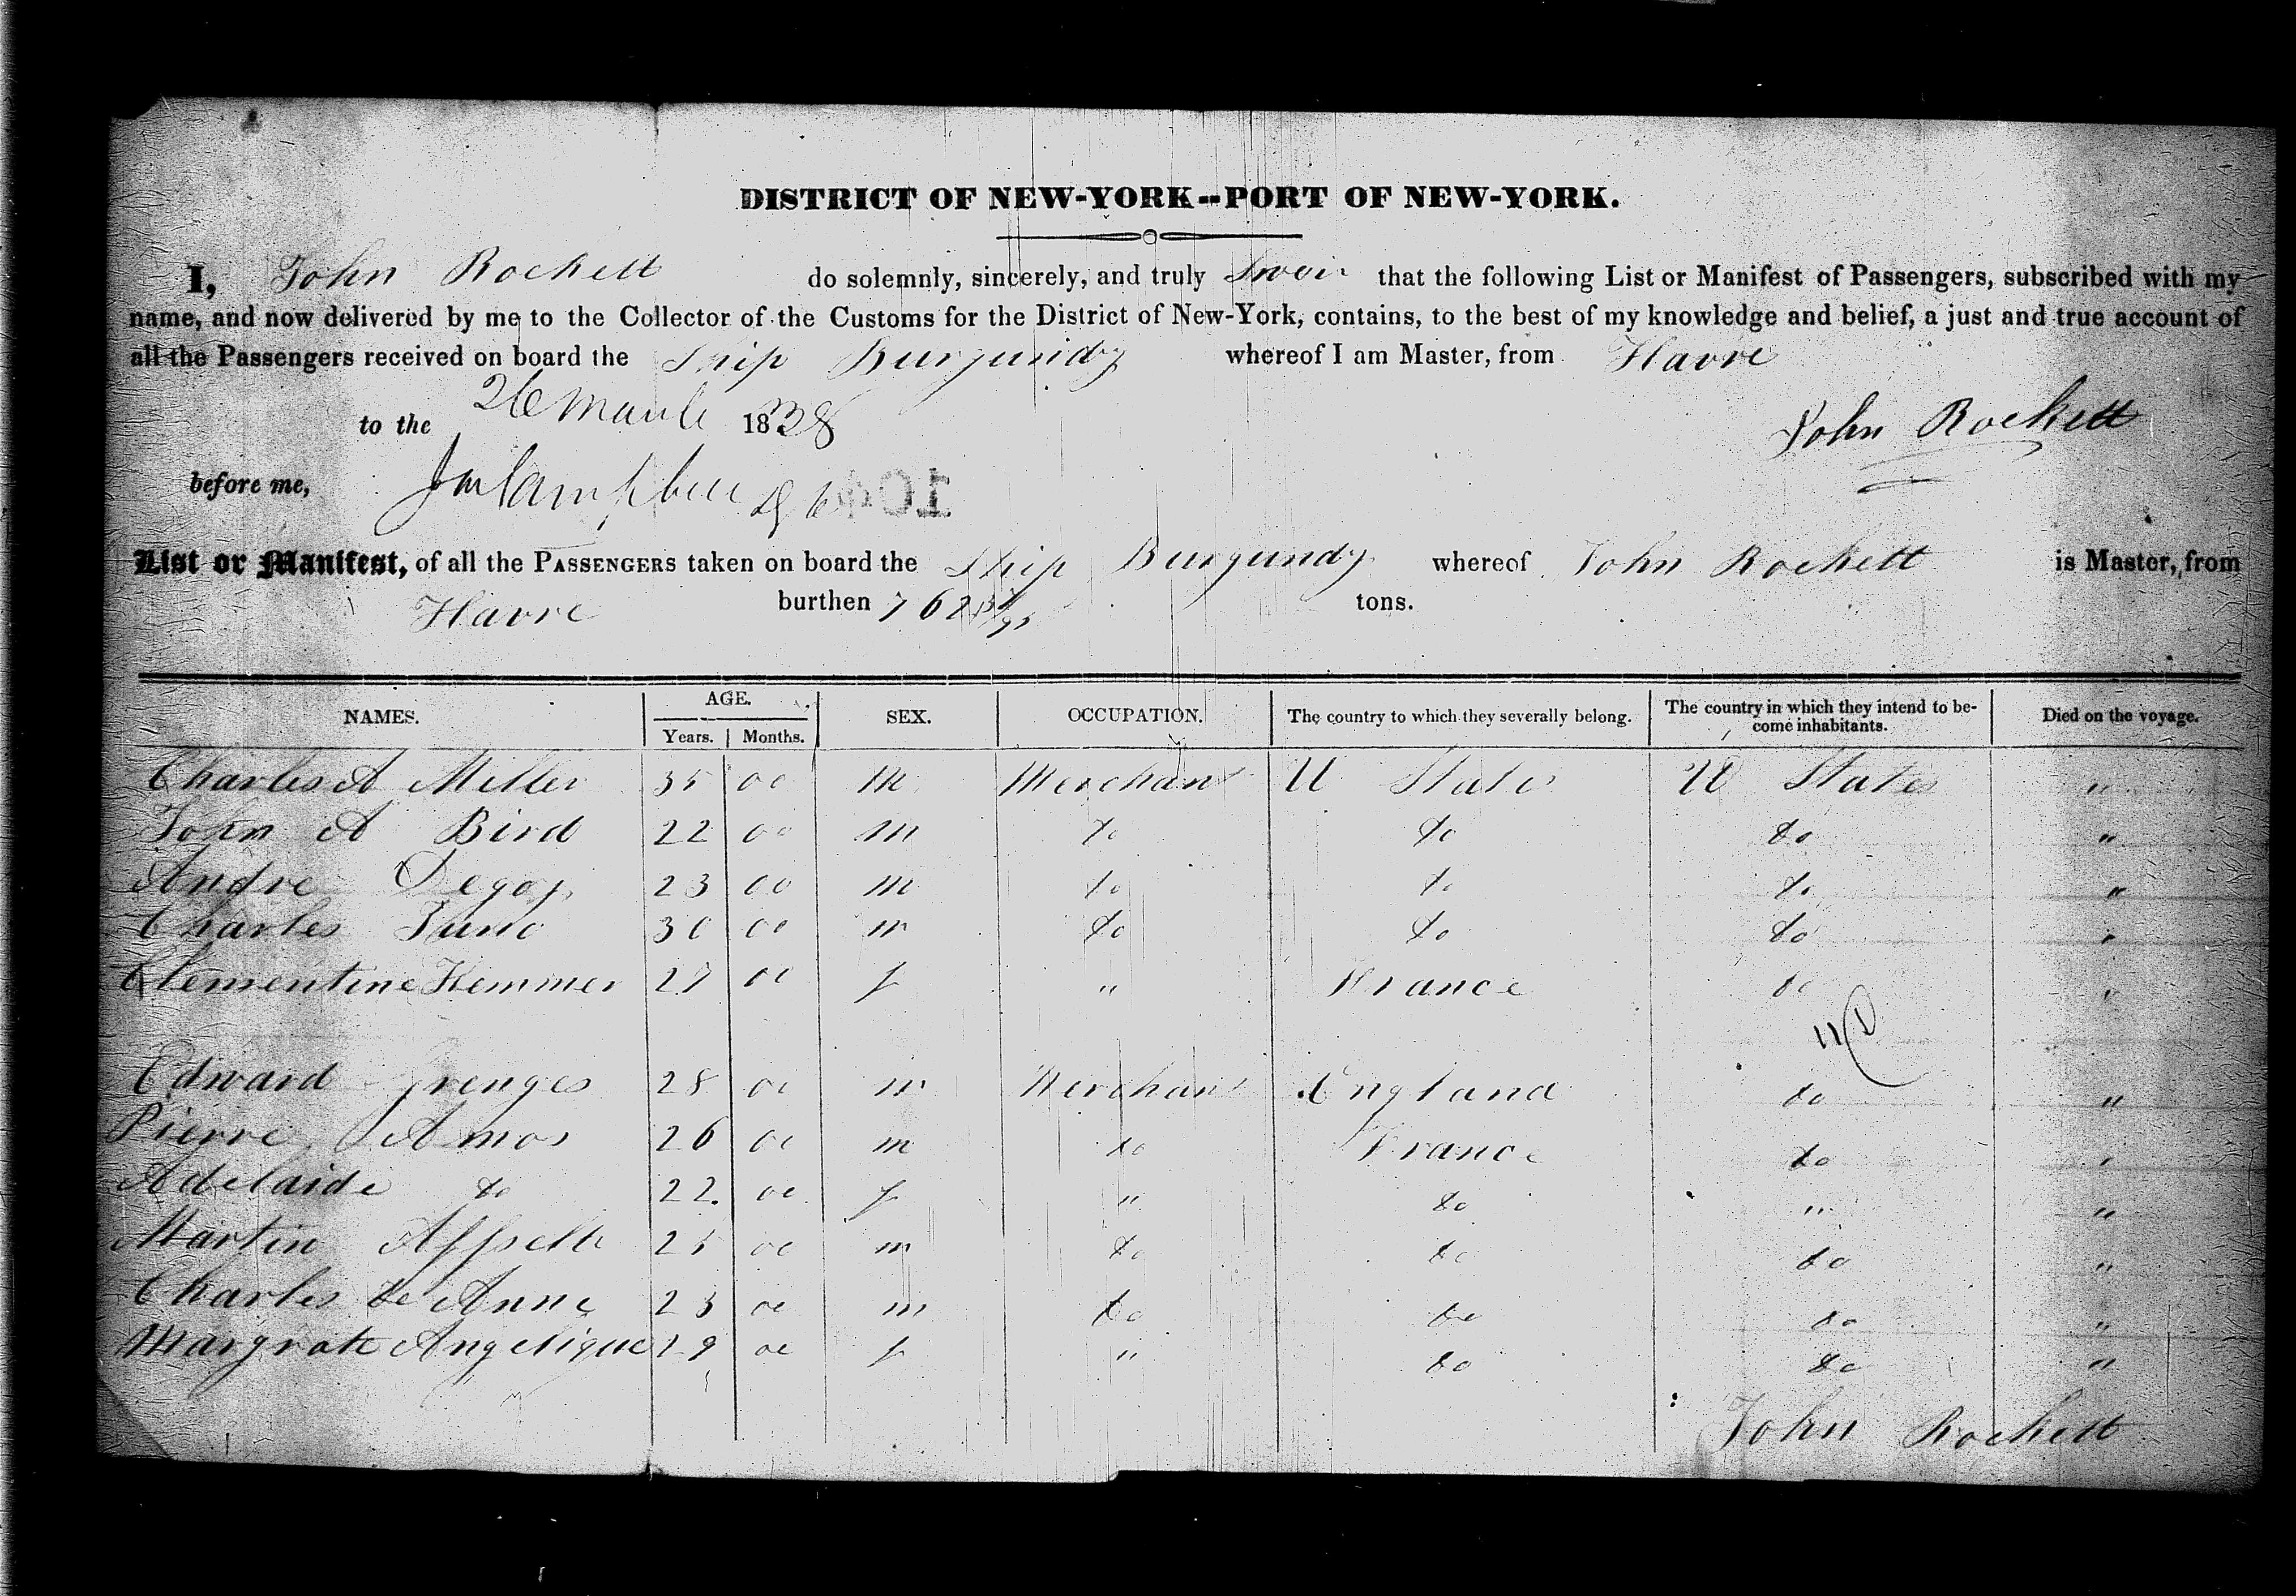 DISTRICT OF NEW-YORK--PORT OF NEW-YORK.
I, John Rockett do solemnly, sincerely, and truly Swear that the following List or Manifest of Passengers, subscribed with my
name, and now delivered by me to the Collector of the Customs for the District of New-York, contains, to the best of my knowledge and belief, a just and true account of
all the Passengers received on board the Ship Burgundy whereof I am Master, from Havre
to the 26 March 1838 John Rockett
before me, 104
List or Manifest, of all the PASSENGERS taken on board the Ship Burgundy whereof John Rockett is Master, from
Havre burthen 762 tons.
NAMES. AGE. Years. Months. SEX. OCCUPATION. The country to which they severally belong. The country in which they intend to be- come inhabitants. Died on the voyage.
Charles A Miller 35 00 m Merchant U States U States "
John A Bird 22 00 m do do do "
Andre 23 00 m do do do "
Charles 30 00 m do do do "
Clementine Hemmer 27 00 f " France do "
Edward 28 00 m Merchant England do "
Pierre Amos 26 00 m do France do "
Adelaide do 22 00 f " do " "
Martin 25 00 m do do do "
Charles de Anne 23 00 m do do do "
Margrate Angelique 29 00 f " do do "
John Rockett